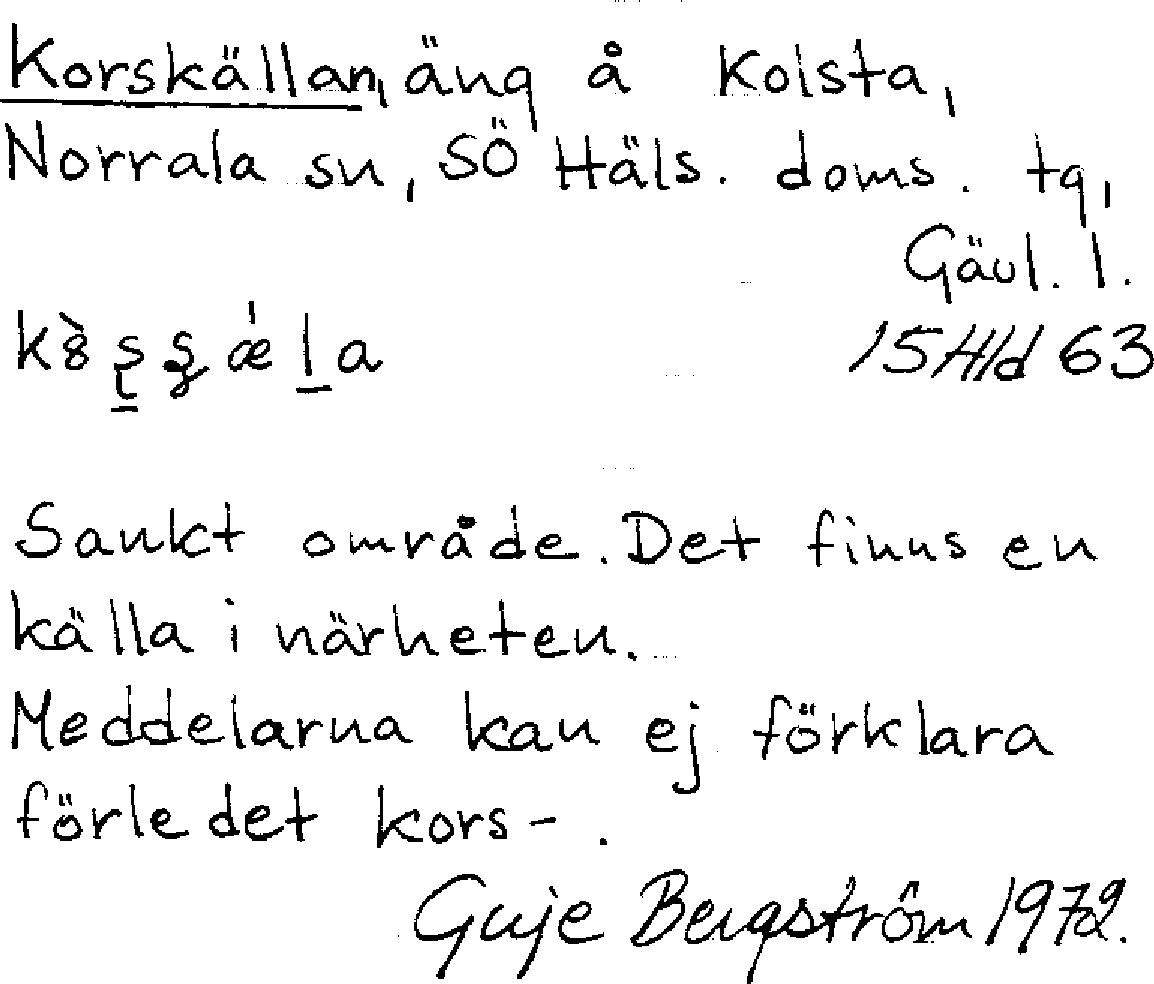 Korskällan, äng å Kolsta,
Norrala sn, SÖ Häls. doms. tg,
Gävl. l.
15H1d 63
Sankt område. Det finns en
källa i närheten.
Meddelarna kan ej förklara
förledet kors-.
Guje Bergström 1972.